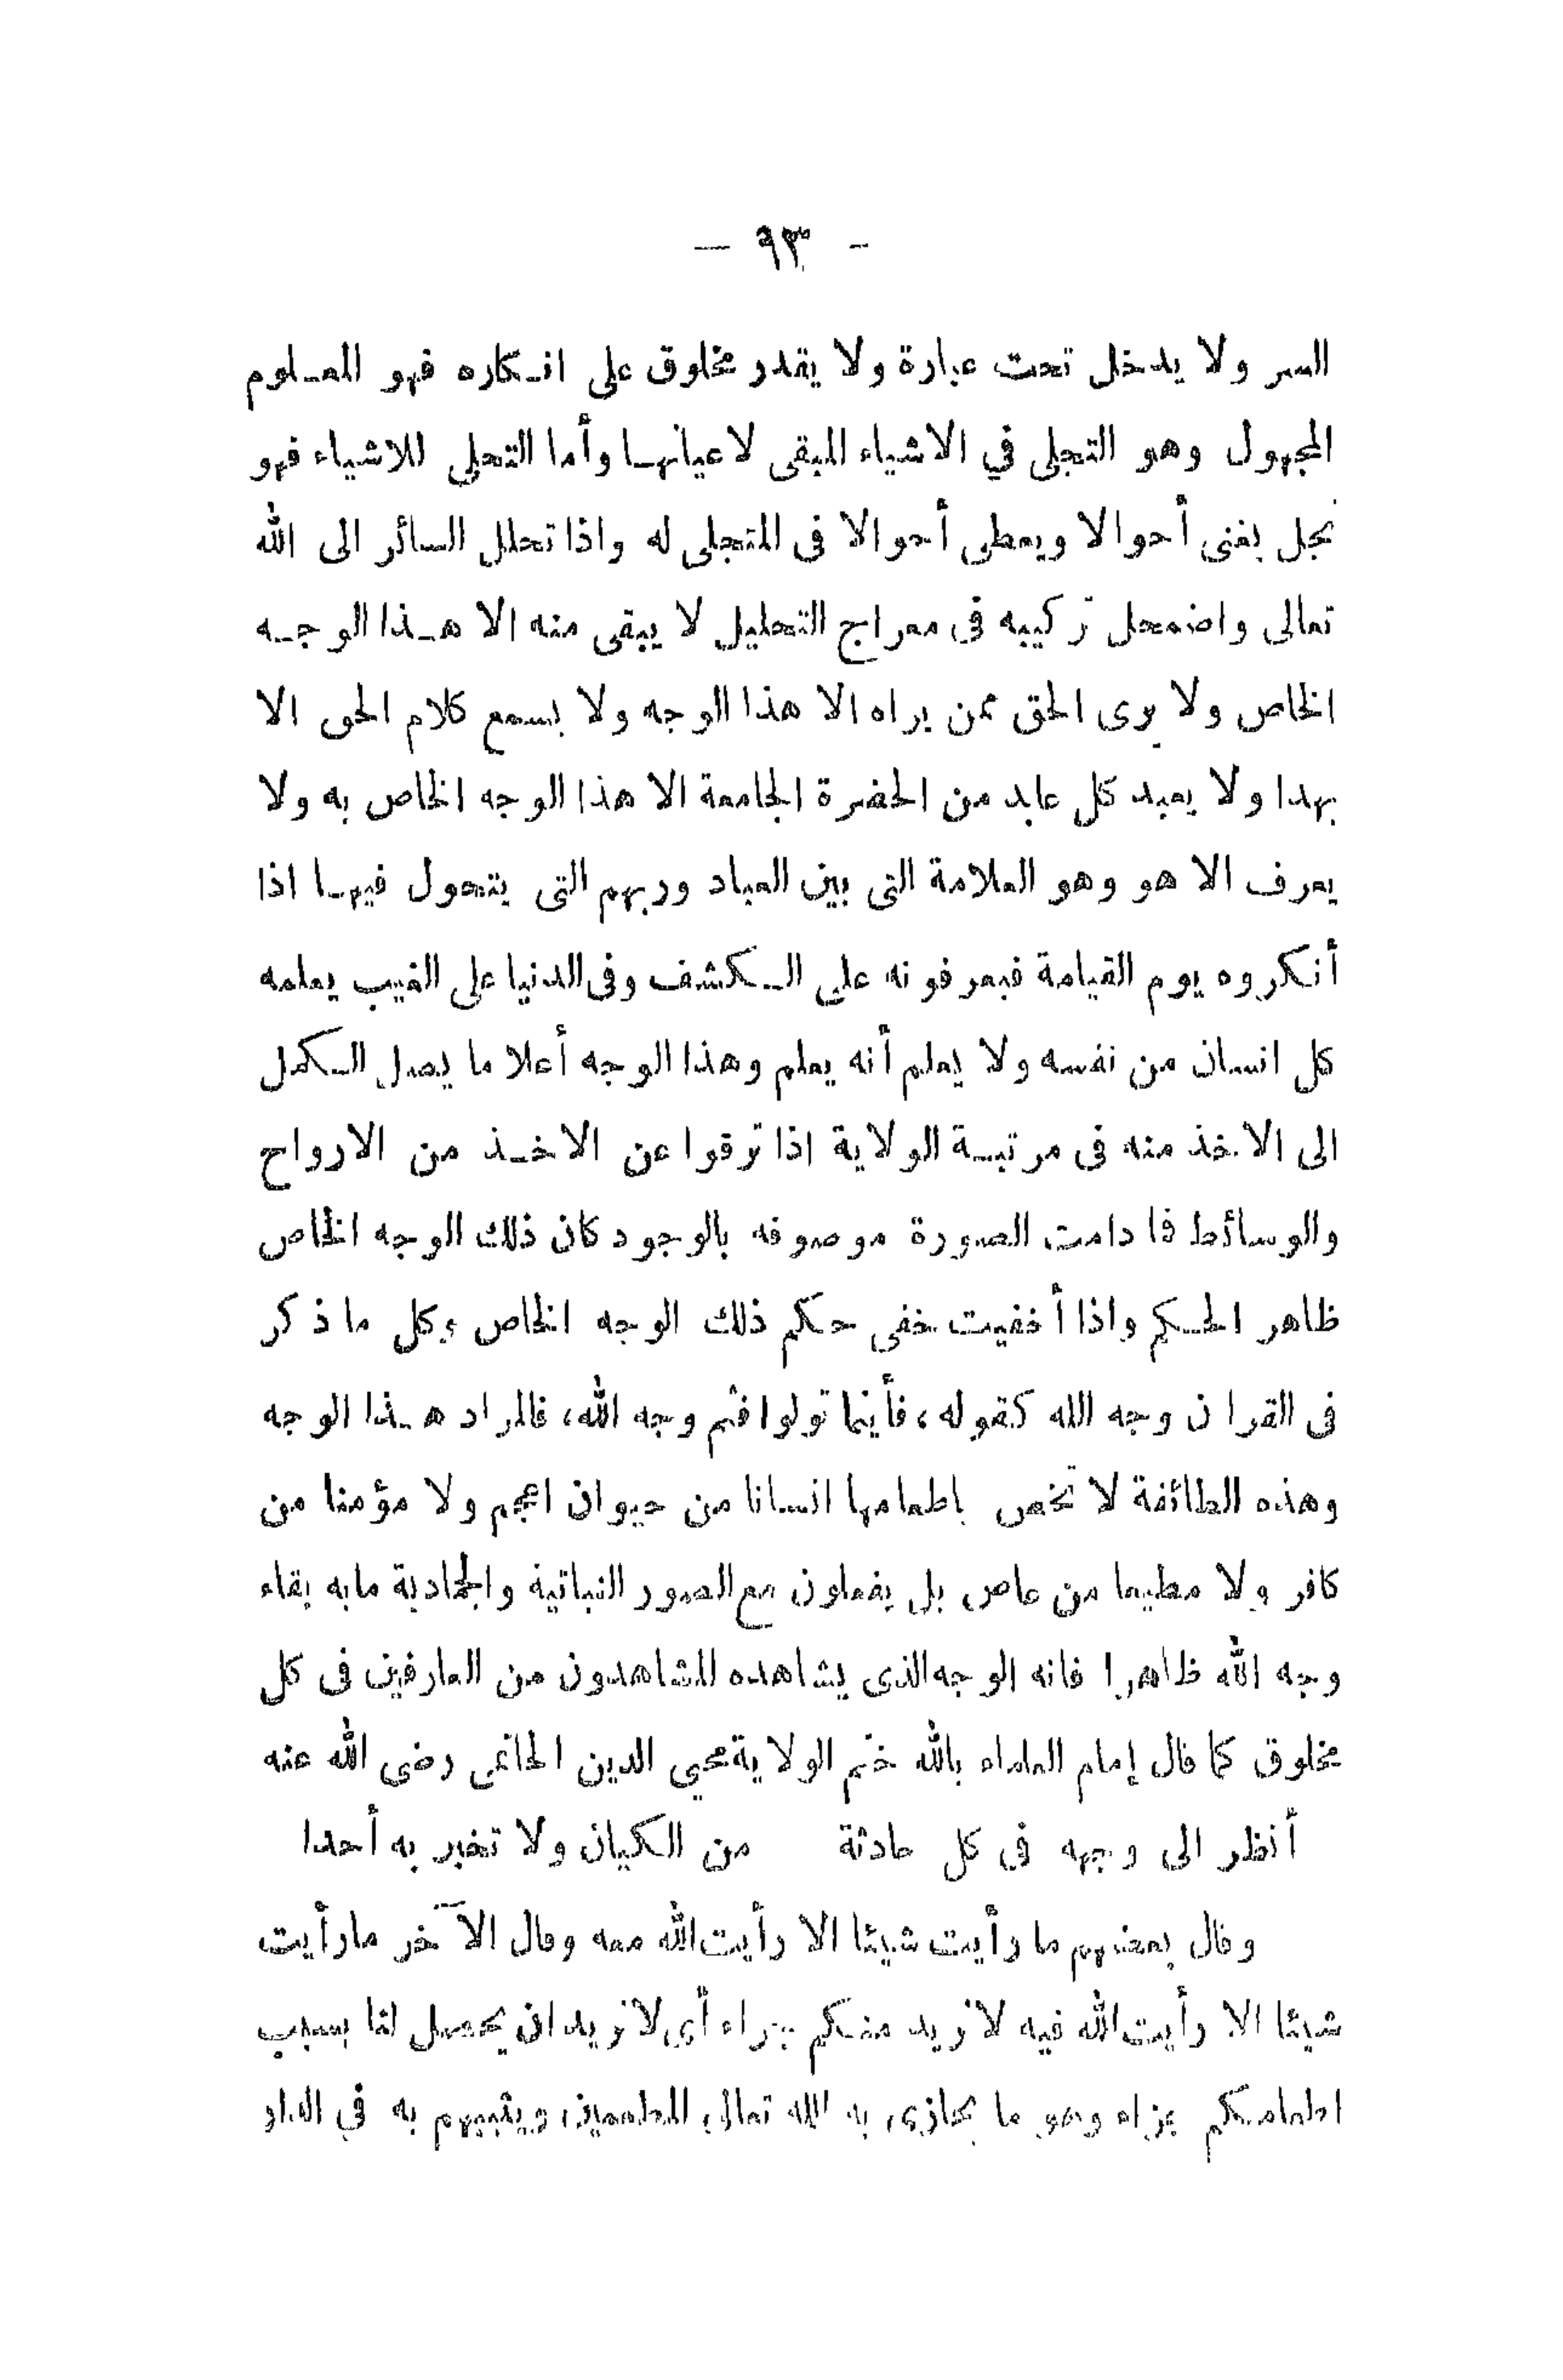 — ٩٣ —
السر ولا يدخل تحت عبارة ولا يقدر مخلوق على انكاره فهو المعلوم
المجهول وهو التجلى في الاشياء المبقى لاعيانها وأما التجلى للاشياء فهو
تجل يفنى أحوالا ويعطى أحوالا فى المتجلى له واذا تحلل السائر الى الله
تعالى واضمحل تركيبه فى معراج التحليل لا يبقى منه الا هذا الوجه
الخاص ولا يرى الحق ممن يراه الا هذا الوجه ولا يسمع كلام الحق الا
بهذا ولا يعبد كل عابد من الحضرة الجامعة الا هذا الوجه الخاص به ولا
يعرف الا هو وهو العلامة التى بين العباد وربهم التى يتحول فيها اذا
أنكروه يوم القيامة فيعرفونه على الكشف وفى الدنيا على الغيب يعلمه
كل انسان من نفسه ولا يعلم أنه يعلم وهذا الوجه أعلا ما يصل الكمل
الى الاخذ منه فى مرتبة الولاية اذا ترقوا عن الاخذ من الارواح
والوسائط فما دامت الصورة موصوفه بالوجود كان ذلك الوجه الخاص
ظاهر الحكم واذا أخفيت خفى حكم ذلك الوجه الخاص وكل ما ذكر
فى القران وجه الله كقوله، فأينما تولوا فثم وجه الله، فالمراد هذا الوجه
وهذه الطائفة لا تخص باطعامها انسانا من حيوان اعجم ولا مؤمنا من
كافر ولا مطيعا من عاص بل يفعلون مع الصور النباتية والجمادية مابه بقاء
وجه الله ظاهرا فانه الوجه الذى يشاهده المشاهدون من العارفين فى كل
مخلوق كما قال إمام العلماء بالله ختم الولاية محيي الدين الحاتمى رضى الله عنه
أنظر الى وجهه فى كل حادثة من الكيان ولا تخبر به أحدا
وقال بعضهم ما رأيت شيئا الا رأيت الله معه وقال الآخر مارأيت
شيئا الا رأيت الله فيه لا نريد منكم جزاء أى لا نريد ان يحصل لنا بسبب
اطعامكم جزاء وهو ما يجازى به الله تعالى المطعمين ويثيبهم به في الدار